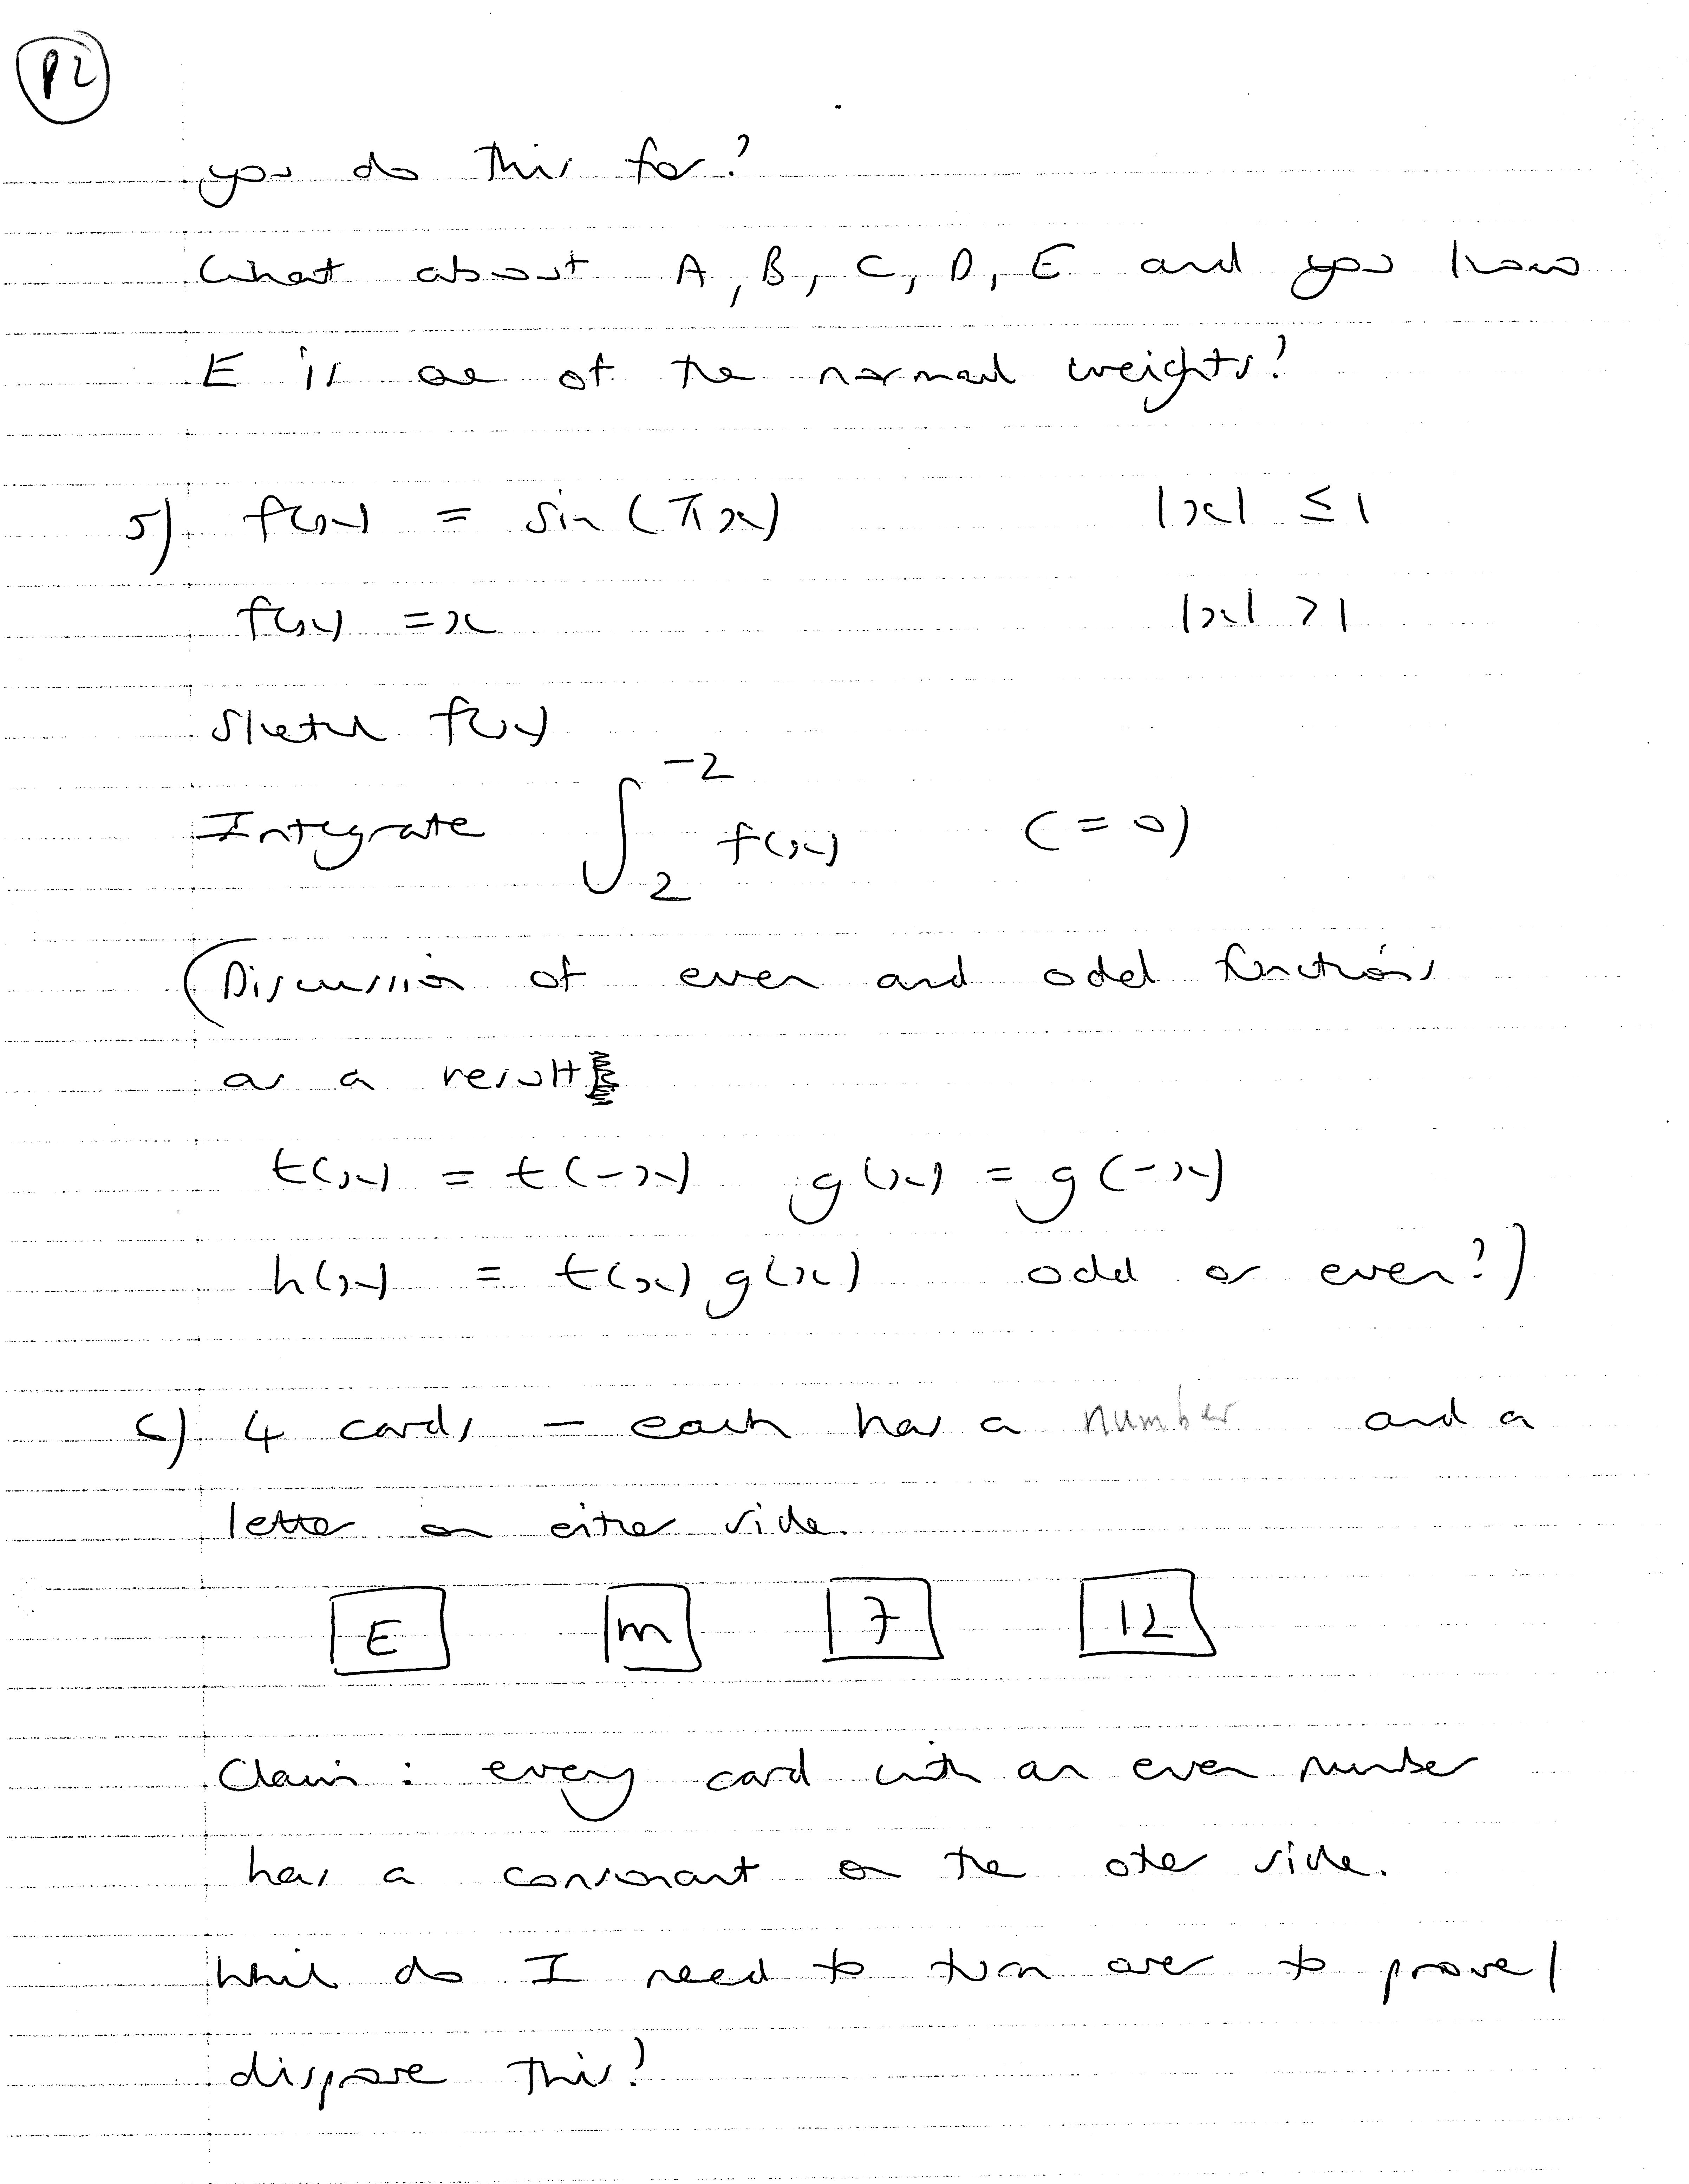 P2
you do this for?
What about A, B, C, D, E and you know
E is one of the normal weights?
5) f(x) = sin(πx) |x| ≤ 1
f(x) = x |x| > 1
Sketch f(x)
Integrate ∫₂⁻² f(x) (= 0)
(Discussion of even and odd functions
as a result
t(x) = t(-x) g(x) = g(-x)
h(x) = t(x) g(x) odd or even?)
6) 4 cards - each has a number and a
letter on either side.
E m 7 12
Claim: every card with an even number
has a consonant on the other side.
Which do I need to turn over to prove/
disprove this?